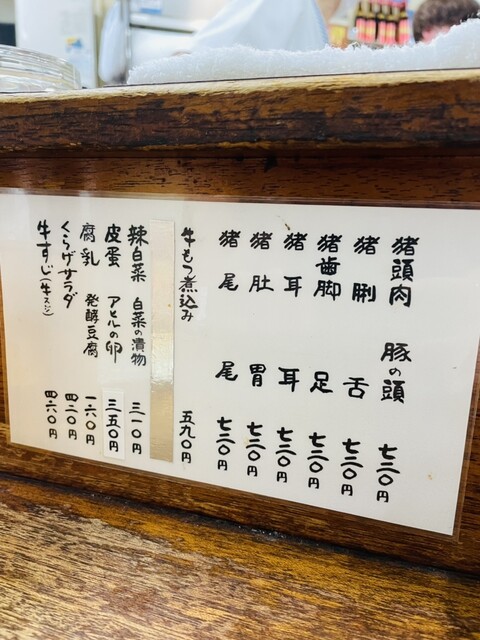 猪頭肉 豚の頭 七三〇円
猪脷 舌 七三〇円
猪歯脚 足 七三〇円
猪耳 耳 七三〇円
猪肚 胃 七三〇円
猪尾 尾 七三〇円
牛もつ煮込み 五九〇円
辣白菜 白菜の漬物 三一〇円
皮蛋 アヒルの卵 三五〇円
腐乳 発酵豆腐 一六〇円
くらげサラダ 四三〇円
牛すじ(牛スジ) 四六〇円